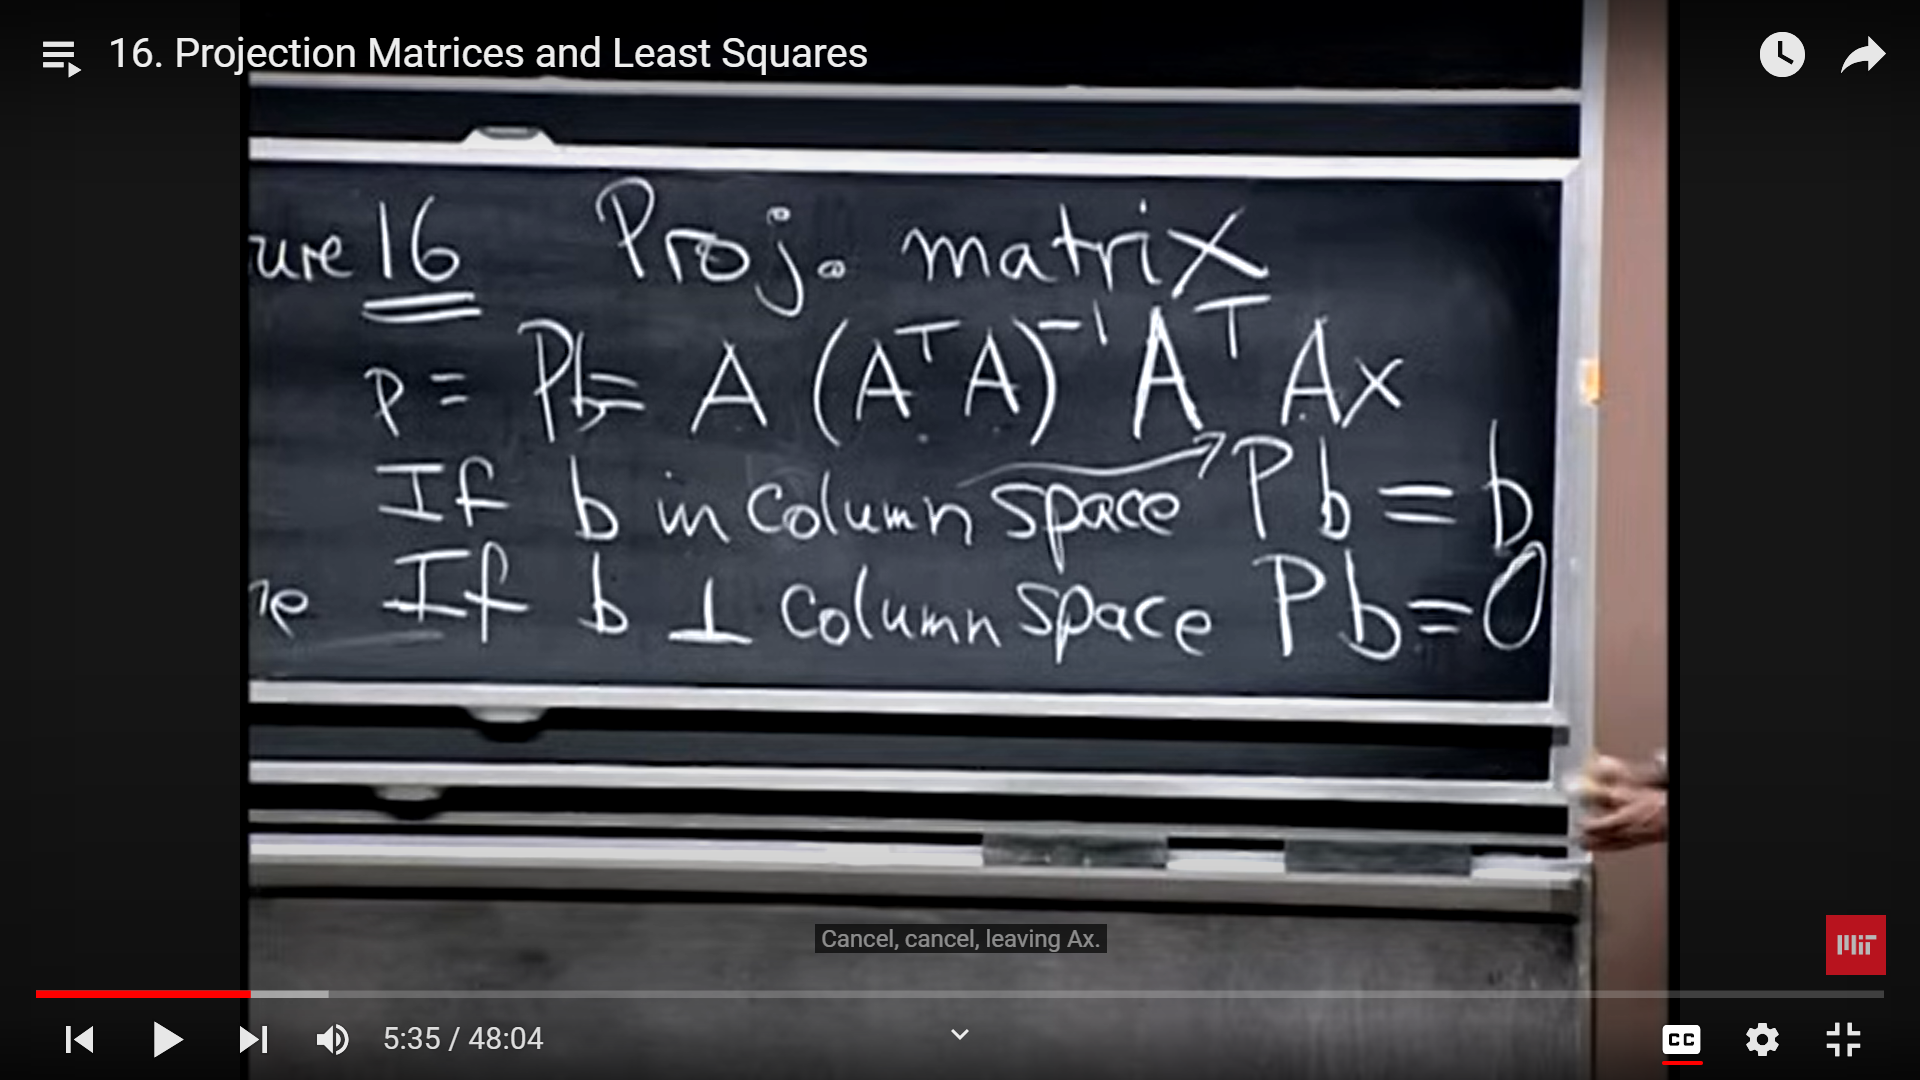 16. Projection Matrices and Least Squares
ure 16 Proj. matrix
p = Pb = A (AᵀA)⁻¹ Aᵀ Ax
If b in column space → Pb = b
If b ⊥ column space Pb = 0
Cancel, cancel, leaving Ax.
MIT
5:35 / 48:04
CC